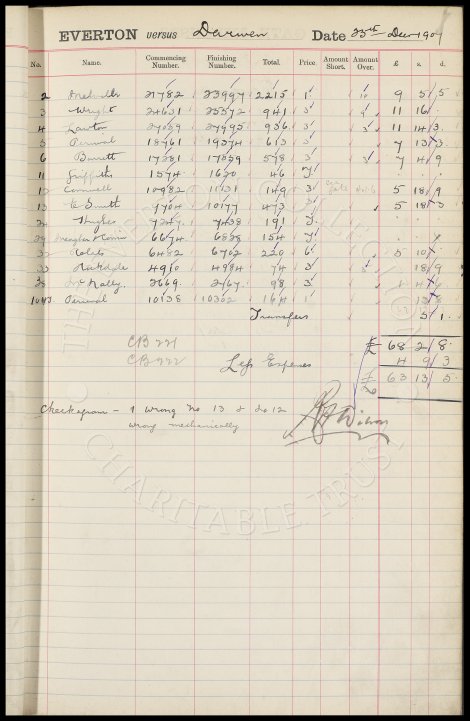 EVERTON versus Darwen Date 25th Dec 1901
No. Name. Commencing Number. Finishing Number. Total. Price Amount Short. Amount Over. £ s. d.
2 21782 23997 2215 1 10 9 5 5
3 Wright 24631 25572 941 3 11 16
4 Lawton 936 3 3 11 14 3
5 Percival 18761 19374 613 3 7 13 3
6 Burnett 17281 17859 578 3 7 4 9
11 Griffiths 1574 1620 46
12 Cornwell 10982 11131 149 3 5 18 9
13 E Smith 9704 10177 473 3 5 18 3
24 Hughes 7247 7438 191
29 6674 6828 154
32 6482 6702 220 6 5 10
33 4910 4984 74 3 18 9
38 McNally 2669 2767 98 3 1 4 6
Percival 10138 10302 164 1 13 8
Transfers 5 1
CB 221 £ 68 2 8
CB 222 Less Expenses 4 9 3
£ 63 13 5
Check upon - 1 wrong No 13 & do 12
wrong mechanically
THE EVERTON COLLECTION CHARITABLE TRUST